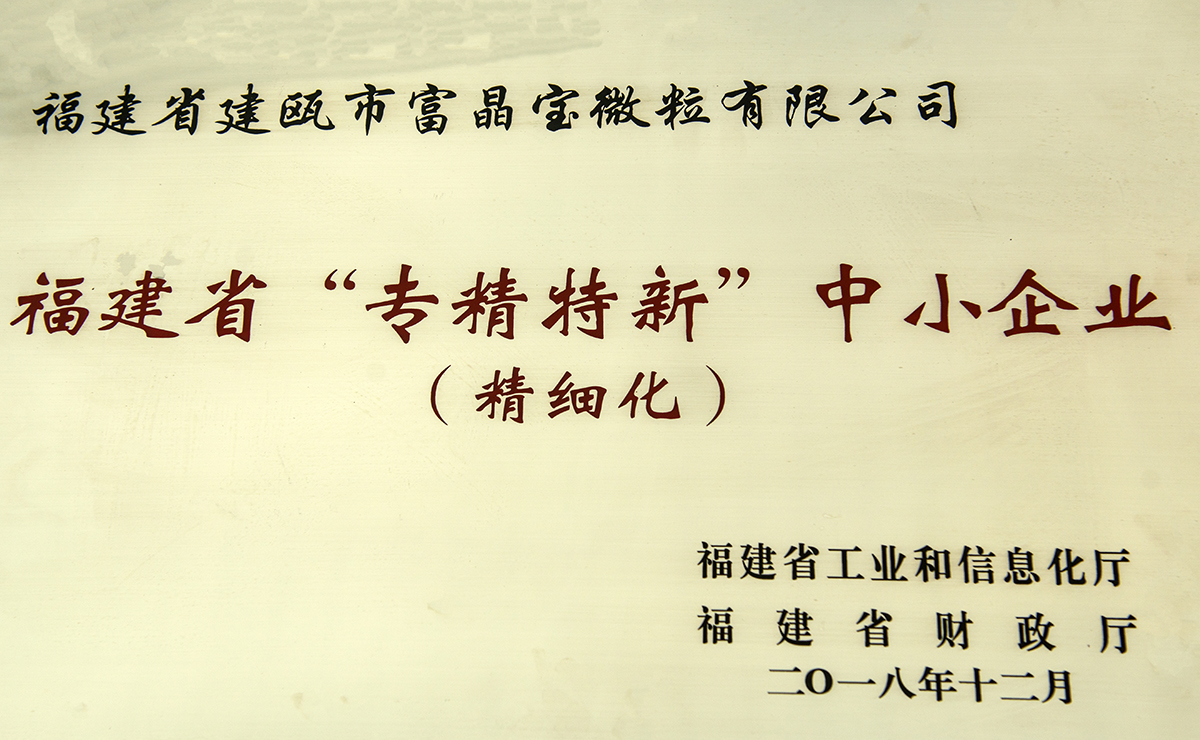 福建省建瓯市富晶宝微粒有限公司
福建省“专精特新”中小企业
（精细化）
福建省工业和信息化厅
福建省财政厅
二O一八年十二月